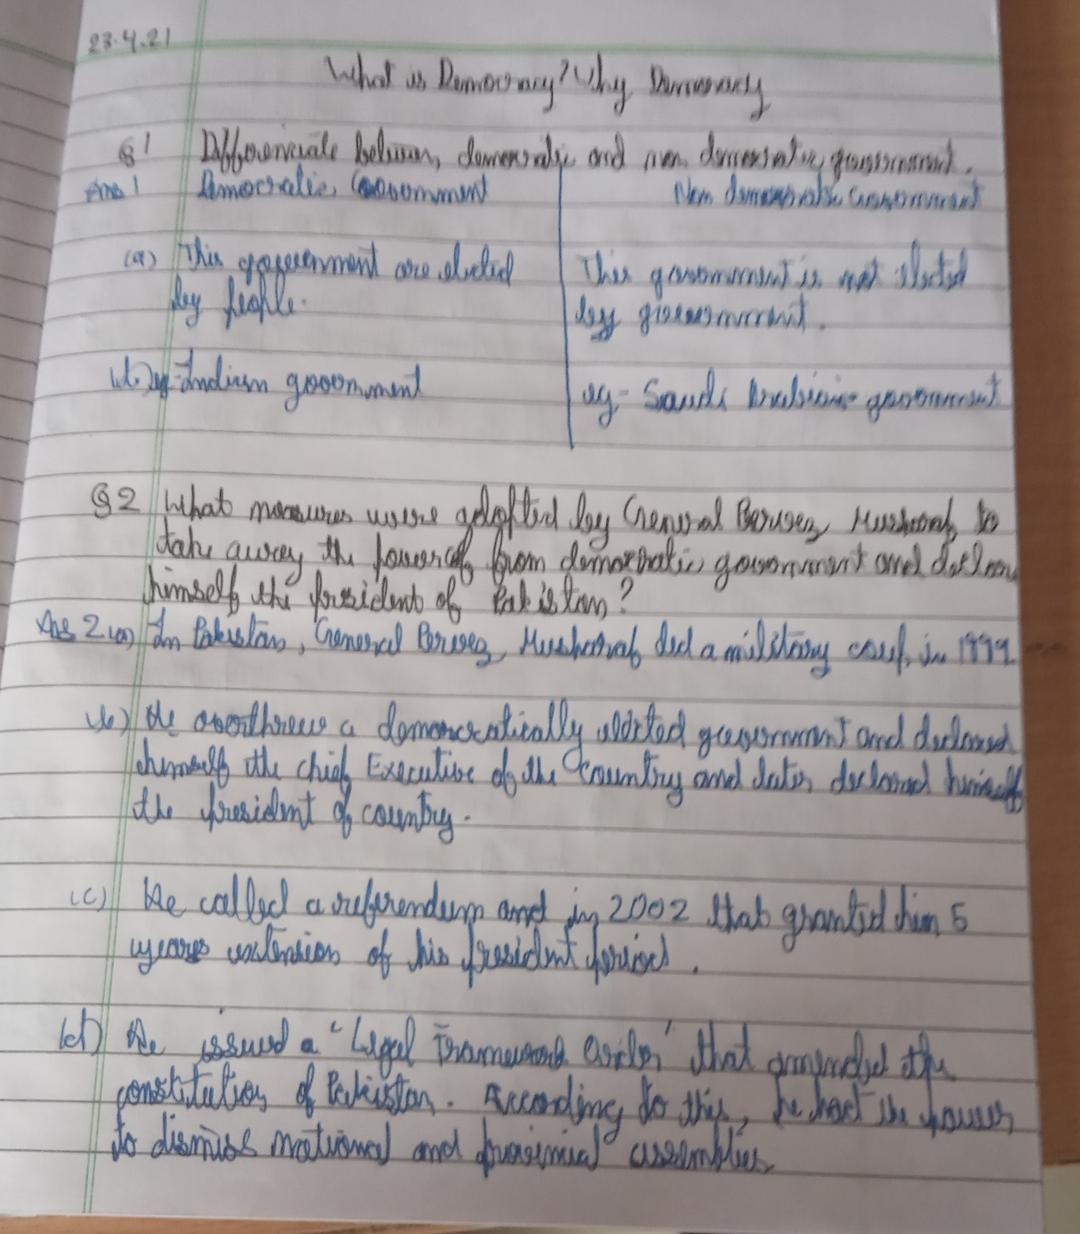 23.4.21
What is Democracy? Why Democracy
Q1 Differenciate between democratic and non democratic government.
Ans 1 Democratic Government Non democratic Government
(a) This gogeuernment are elected This government is not elected
by people. by government.
(b) eg- Indian government eg- Saudi Arabian government
Q2 What measures were adopted by General Pervez Musharraf to
take away the power of from democratic government and declare
himself the president of Pakistan?
Ans 2 (a) In Pakistan, General Pervez Musharraf did a military coup in 1999
(b) He overthrew a democratically elected government and declared
himself the chief Executive of the country and later declared himself
the president of country.
(c) He called a referendum and in 2002 that granted him 5
years extension of his president period.
(d) He issued a 'Legal Framework order' that amended the
constitution of Pakistan. According to this, he had the power
to dismiss national and provincial assemblies